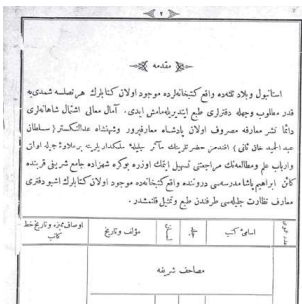 ٢
مقدمه
استانبول وبلاد ثلثه‌ده واقع كتبخانه‌لرده موجود اولان كتابلرك هر نصلسه شمدی‌یه
قدر مطلوب وجهله دفترلری طبع ایتدیریله‌مامش ایدی. آمال معالی اشتمال شاهانه‌لری
دائما نشر معارفه مصروف اولان پادشاه معارفپرور وشهنشاه عدالتكستر (سلطان
عبد الحمید خان ثانی) افندمز حضرتلرینك مآثر جلیلهٔ
وارباب علم ومطالعه‌نك مراجعتنی تسهیل ایتمك اوزره بوكره شهزاده جامع شریفی قربنده
كائن ابراهیم پاشا مدرسه‌سی دروننده واقع كتبخانه‌ده موجود اولان كتابلرك اشبو دفتری
معارف نظارت جلیله‌سی طرفندن طبع وتمثیل قلنمشدر.
اسامئ كتب
جلد
لسان
مؤلف وتاریخ
اوصاف ممیزه وتاریخ خط
كاتب
مصاحف شریفه